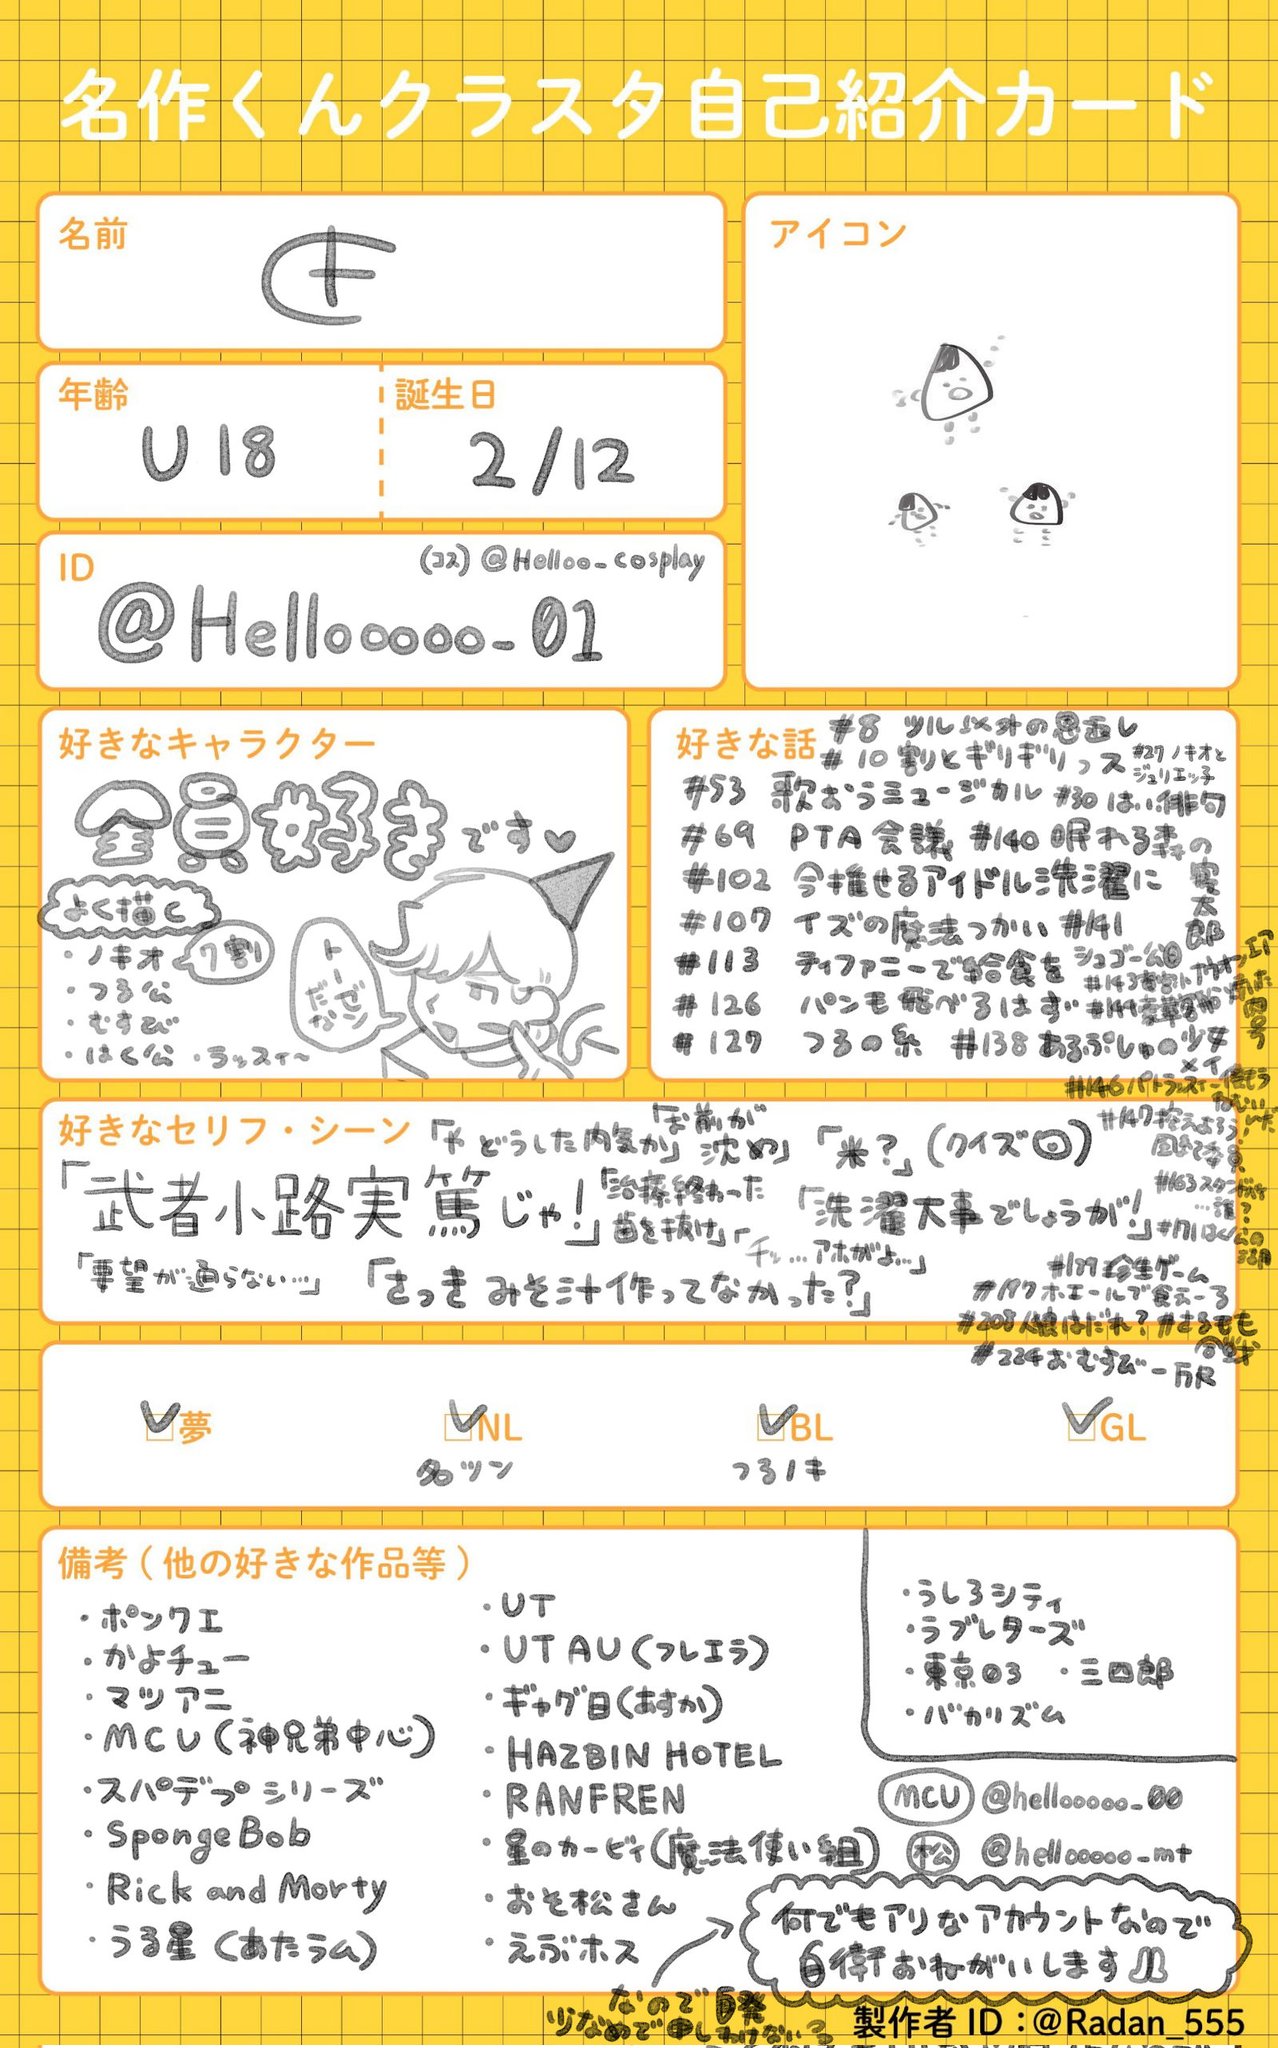 名作くんクラスタ自己紹介カード
名前
アイコン
年齢
U18
誕生日
2/12
ID
(コス) @Helloo_cosplay
@Hellooooo_01
好きなキャラクター
全員好きです♡
よく描く
・ノキオ 7割
・つる公
・むすび
・はく公 ・ラッスィ〜
トーゼンだな
好きな話
#8 ツル以外の恩返し
#10 割とギリギリっス
#27 ノキオとジュリエッ子
#53 歌おうミュージカル #30 はい俳句
#69 PTA会議 #140 眠れる森の実太郎
#102 今推せるアイドル洗濯に
#107 イズの魔法つかい #141
#113 ティファニーで給食を
#126 パンも飛べるはず
#127 つるの糸 #138 あるぷしゅの少女
好きなセリフ・シーン
「や どうした内気か」
「お前が沈め」
「米?」(クイズ回)
「武者小路実篤じゃ!」
「治療終わった歯を抜け」
「洗濯大事でしょうが!」
「チッ...アホがよ...」
「要望が通らない...」
「さっきみそ汁作ってなかった?」
#197 ホエールで食えーる
#208 人魚はだれ?
#224 おむすびー万尺
夢
NL
BL
GL
名ツン
つるノキ
備考 ( 他の好きな作品等 )
・ポンクエ
・かよチュー
・マツアニ
・MCU(神兄弟中心)
・スパデプシリーズ
・SpongeBob
・Rick and Morty
・うる星(あたラム)
・UT
・UTAU(フレエラ)
・ギャグ日(あすか)
・HAZBIN HOTEL
・RANFREN
・星のカービィ(魔法使い組)
・おそ松さん
・えぶホス
・うしろシティ
・ラブレターズ
・東京03 ・三四郎
・バカリズム
MCU @hellooooo_00
松 @hellooooo_mt
何でもアリなアカウントなので
自衛おねがいします
なので自発
少なめで申しわけないっ
製作者 ID：@Radan_555